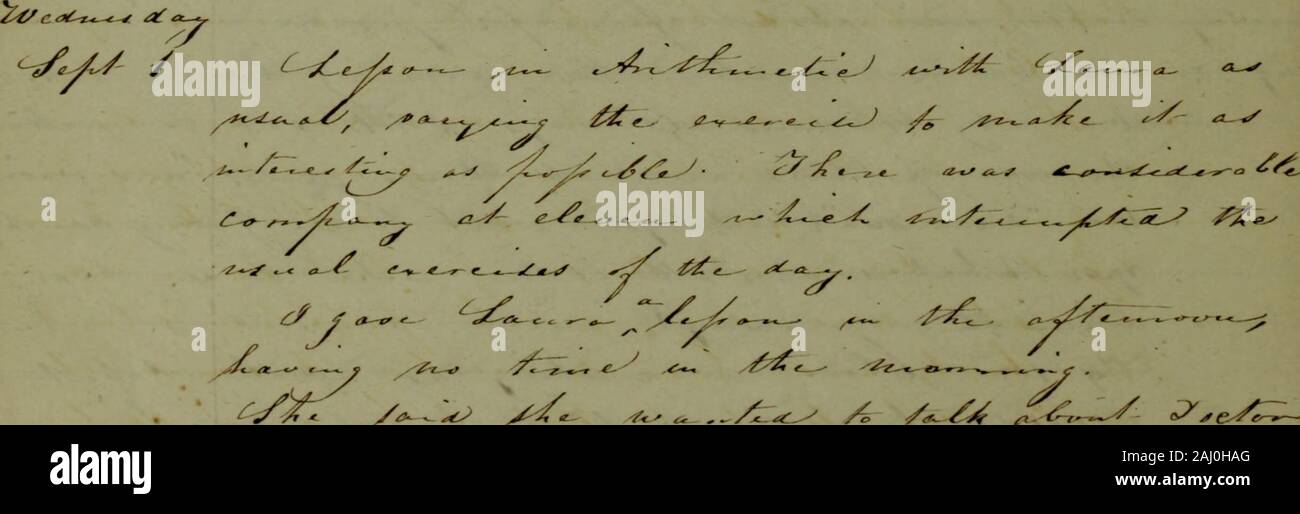 Wednesday
Sept 6 Lesson in Arithmetic with Laura as
usual, varying the exercise to make it as
interesting as possible. There was considerable
company at eleven which interrupted the
usual exercises of the day.
I gave Laura a lesson in the afternoon,
having no time in the morning.
She said she wanted to talk about Doctor
a alamy stock photo
alamy
Image ID: 2AJ0HAG
www.alamy.com